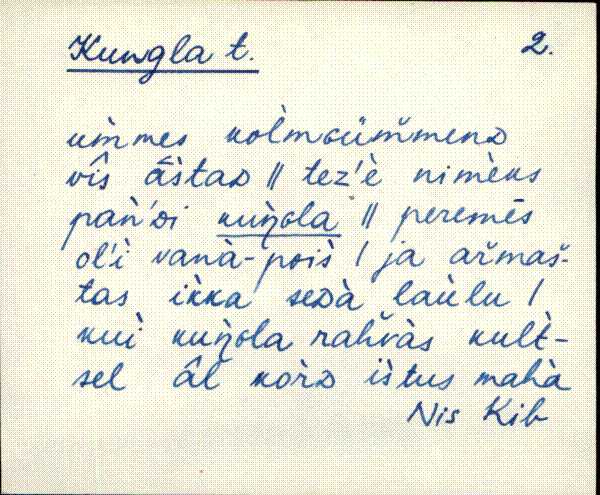 Kungla t. 2.
ᴜm̀mes kolmcüm̆menᴅ
vîs âs̀taᴅ || tez'è nimèks
pàǹ'ᴅi kuŋ̀ɢla || peremēs
ol'ì vanà-poìs̀ | ja ar̆maš-
tas ìkka seᴅà laùlu |
kuì kuŋ̀ɢla rah̆vàs kul̀t-
sel âl kor̀ᴅ ìs̀tus mahà
Nis Kib